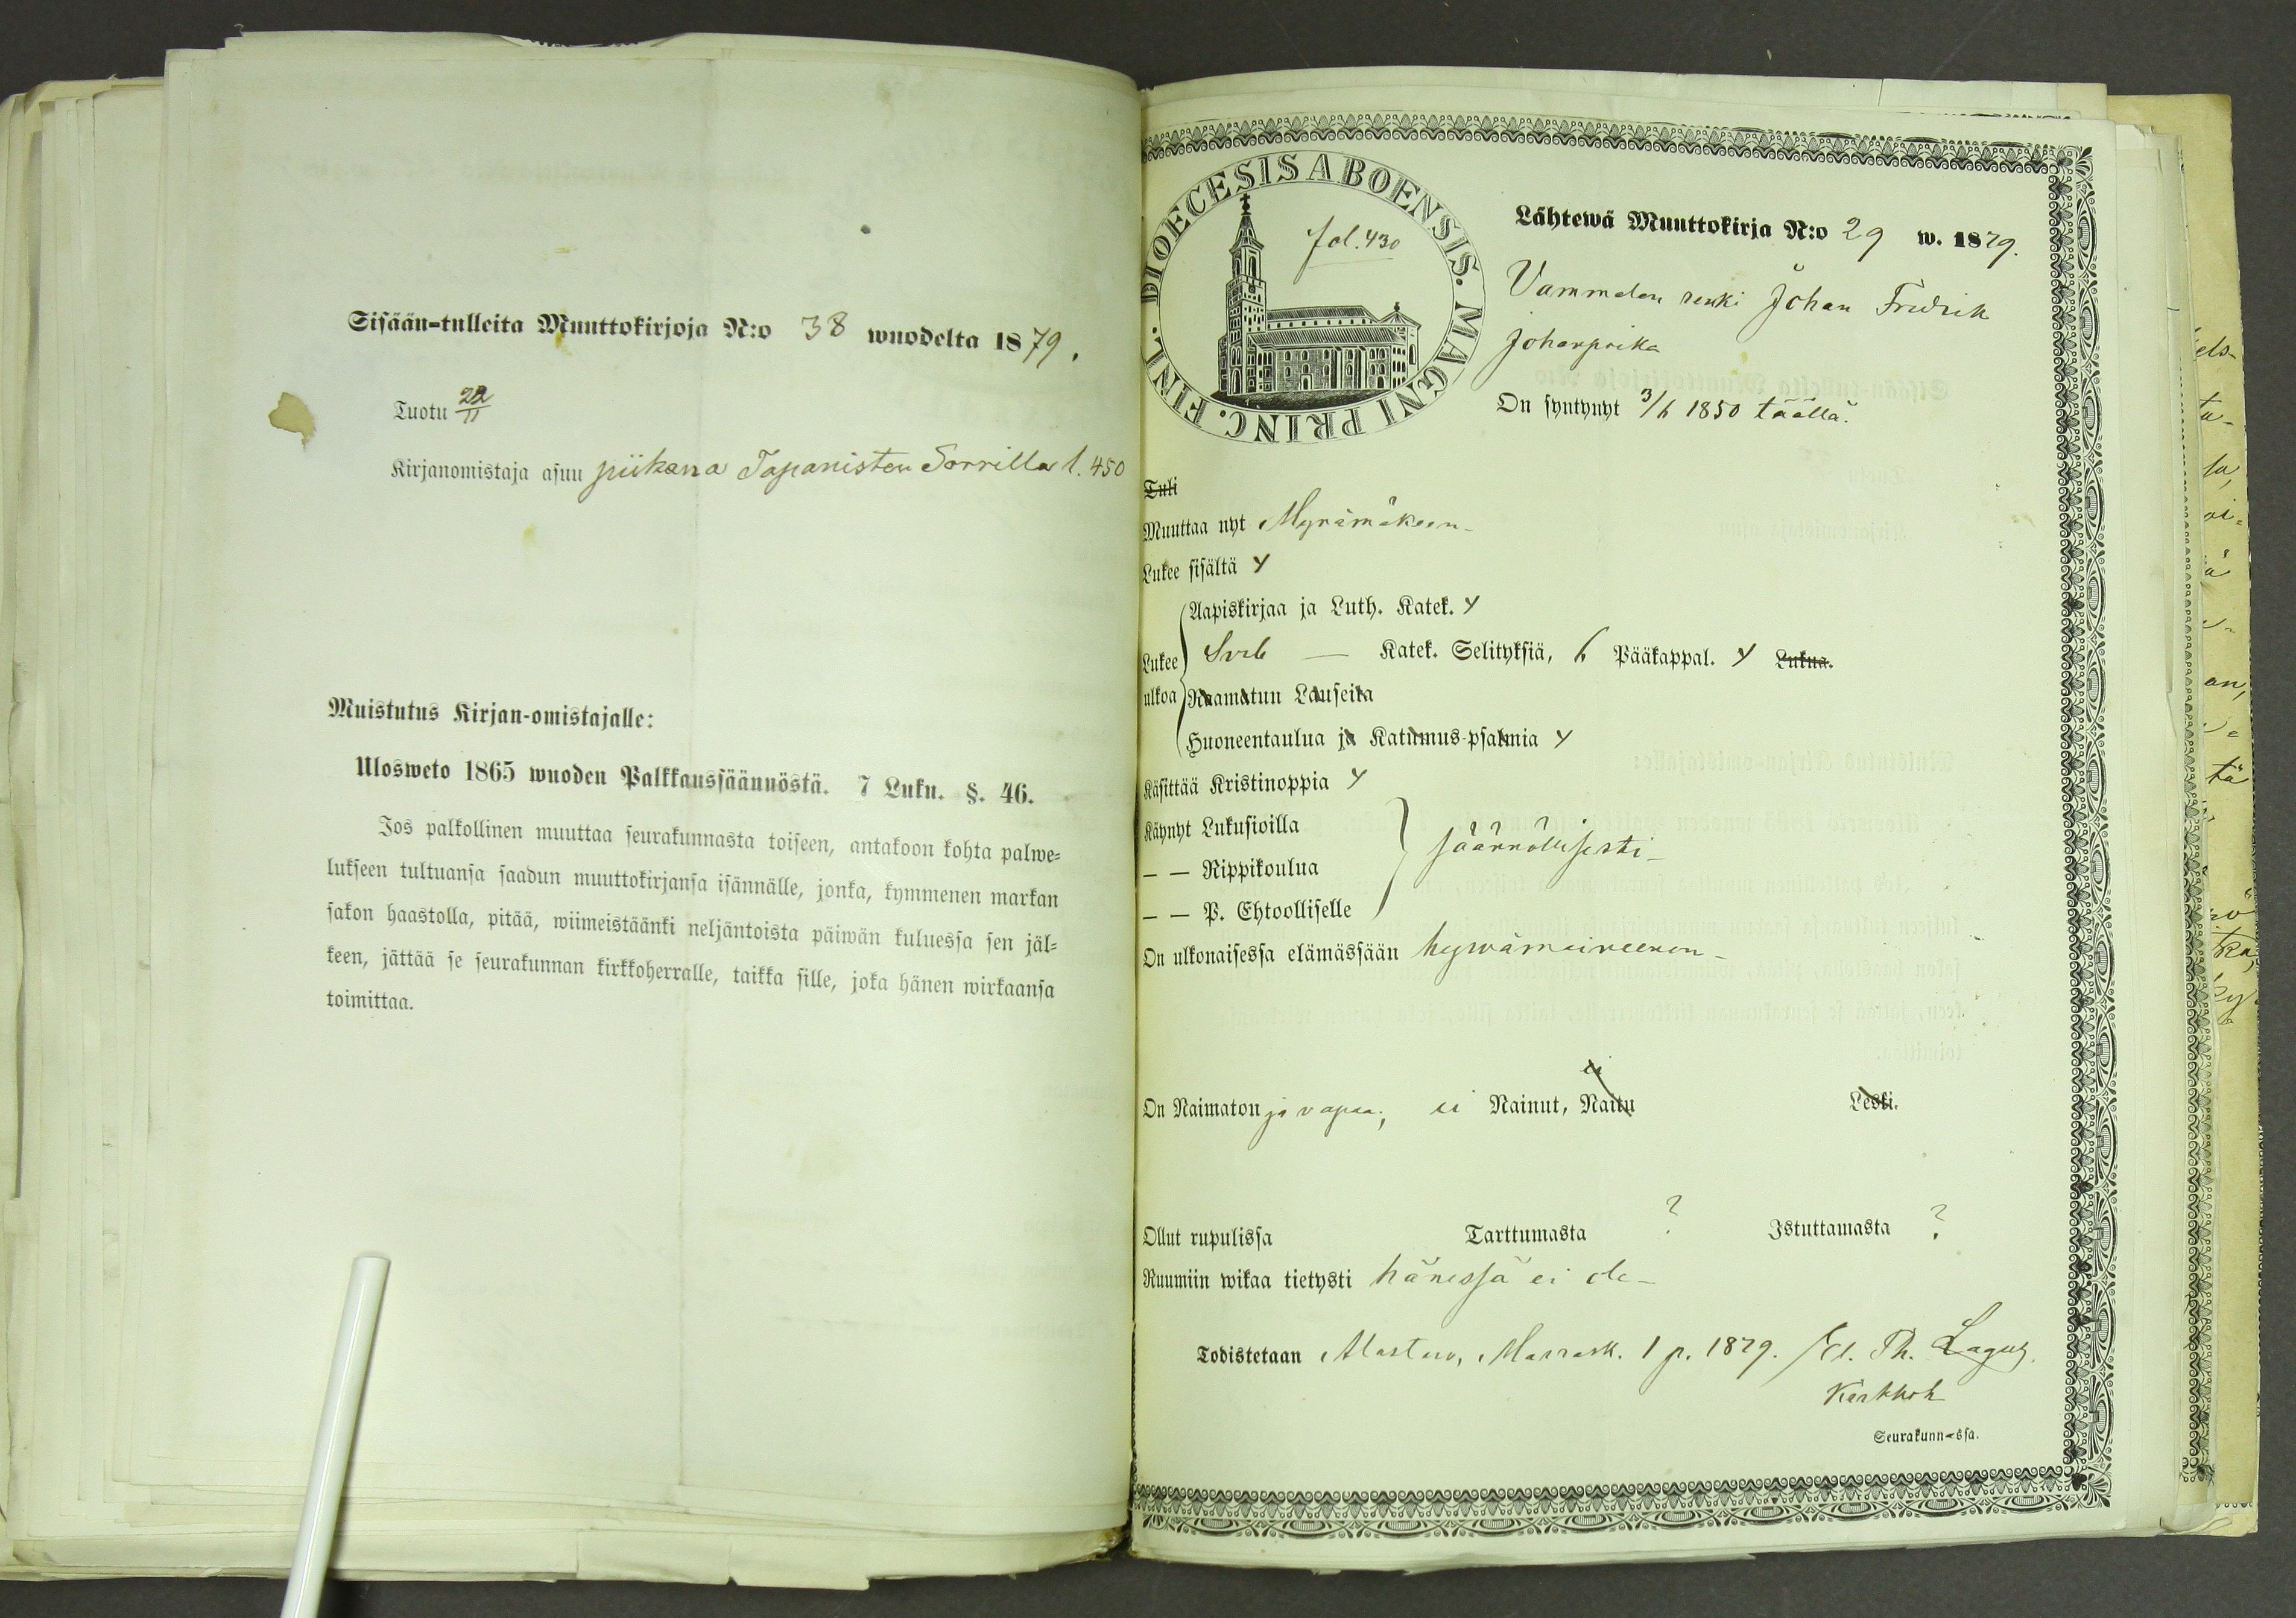 Sisään-tulleita Muuttokirjoja N:o 38 wuodelta 1879.
Tuotu 22/11
Kirjanomistaja asuu piikana Tapanisten Sorrilla l. 450
Muistutus Kirjan-omistajalle:
Ulosweto 1865 wuoden Palkkaussäännöstä. 7 Luku. §. 46.
Jos palkollinen muuttaa seurakunnasta toiseen, antakoon kohta palwe=
lukseen tultuansa saadun muuttokirjansa isännälle, jonka, kymmenen markan
sakon haastolla, pitää, wiimeistäänki neljäntoista päiwän kuluessa sen jäl=
keen, jättää se seurakunnan kirkkoherralle, taikka sille, joka hänen wirkaansa
toimittaa.
FINL. DIOECESIS ABOENSIS. MAGNI PRINC.
fol. 430
Lähtewä Muuttokirja N:o 29 w. 1879.
Vammalan renki Johan Fredrik
Johanpoika
On syntynyt 3/6 1850 täällä.
Tuli
Muuttaa nyt Mynämäkeen
Lukee sisältä y
Lukee ulkoa
Aapiskirjaa ja Luth. Katek. y
Sveb — Katek. Selityksiä, 6 Pääkappal. y Lukua.
Raamatun Lauseita
Huoneentaulua ja Katumus-psalmia y
Käsittää Kristinoppia y
Käynyt Lukusioilla
— — Rippikoulua säännöllisesti
— — P. Ehtoolliselle
On ulkonaisessa elämässään hywämaineenen
ei
On Naimaton ja vapaa, ei Nainut, Naitu Leski.
Ollut rupulissa Tarttumasta ? Istuttamasta ?
Ruumiin wikaa tietysti hänessä ei ole
Todistetaan Alastaro, Marrask. 1 p. 1879. Ed. Th. Lagus
Kirkkoh
Seurakunn-ssa.